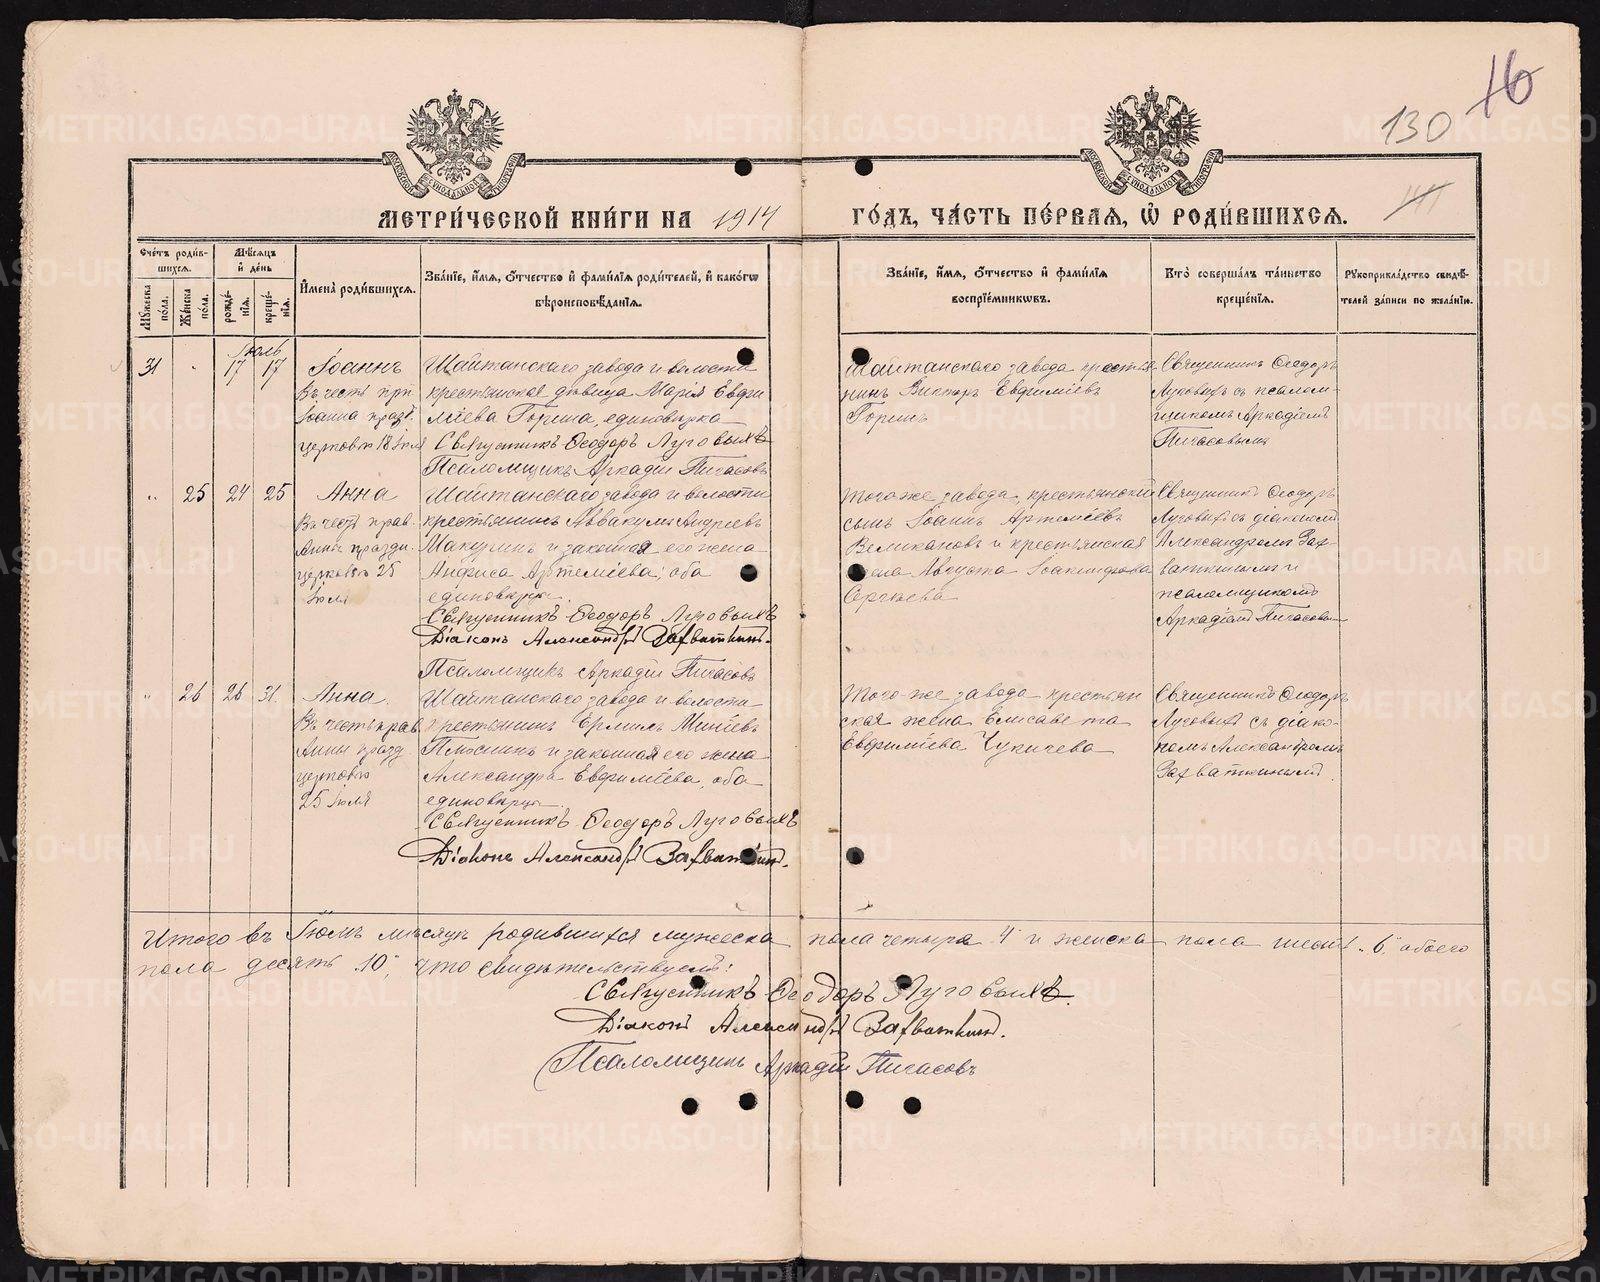 16
130
МЕТРИ́ЧЕСКОЙ КНИ́ГИ НА 1914 ГО́ДЪ, ЧА́СТЬ ПЕ́РВАЯ, Ѡ РОДИ́ВШИХСЯ.
Сче́тъ роди́в-
шихся.
Мѣ́сяцъ
и де́нь
Му́жеска
по́ла.
Же́нска
по́ла.
рожде́-
нія.
креще́-
нія.
Имена̀ роди́вшихся.
Зва́ніе, и́мя, о́тчество и фами́лія роди́телей, и како́гѡ
вѣроисповѣ́данія.
Зва́ніе, и́мя, о́тчество и фами́лія
воспріе́мникѡвъ.
Кто̀ соверша́лъ та́инство
креще́нія.
Рукоприкла́дство свидѣ́-
телей за́писи по жела́нію.
Іюль
31 17 17 Іоаннъ
Въ честь пр
Іоанна празд.
церковью 18 Іюля
Шайтанскаго завода и волости
крестьянская дѣвица Марія Евфи
міева Горина, единовѣрка
Священникъ Ѳеодоръ Луговыхъ
Псаломщикъ Аркадій Пигасовъ
Шайтанскаго завода крестья
нинъ Викторъ Евфиміевъ
Горинъ
Священникъ Ѳеодоръ
Луговыхъ съ псалом-
щикомъ Аркадіемъ
Пигасовымъ
25 24 25 Анна
Въ честь прав.
Анны праздн.
церковью 25
Іюля
Шайтанскаго завода и волости
крестьянинъ Аввакумъ Андреевъ
и законная его жена
Анфиса Артеміева; оба
единовѣрцы.
Священникъ Ѳеодоръ Луговыхъ
Діаконъ Александръ Захваткинъ.
Псаломщикъ Аркадій Пигасовъ
Того-же завода, крестьянскій
сынъ Іоаннъ Артеміевъ
Великановъ и крестьянская
жена Августа
Сергѣева
Священникъ Ѳеодоръ
Луговыхъ съ діакономъ
Александромъ Зах-
ваткинымъ и
псаломщикомъ
Аркадіемъ Пигасовым
26 26 31 Анна
Въ честь прав.
Анны празд
церковью
25 Іюля
Шайтанскаго завода и волости
крестьянинъ Ермилъ
и законная его жена
Александра Евфиміева, оба
единовѣрцы.
Священникъ Ѳеодоръ Луговыхъ
Діаконъ Александръ Захваткинъ.
Того-же завода крестьян
ская жена Елисавета
Евфиміева Чукичева
Священникъ Ѳеодоръ
Луговыхъ съ діако-
номъ Александромъ
Захваткинымъ.
Итого въ Іюлѣ мѣсяцѣ родившихся мужеска пола четыре "4" и женска пола шесть "6", обоего
пола десять "10", что свидѣтельствуемъ:
Священникъ Ѳеодоръ Луговыхъ.
Діаконъ Александръ Захваткинъ.
Псаломщикъ Аркадій Пигасовъ
METRIKI.GASO-URAL.RU